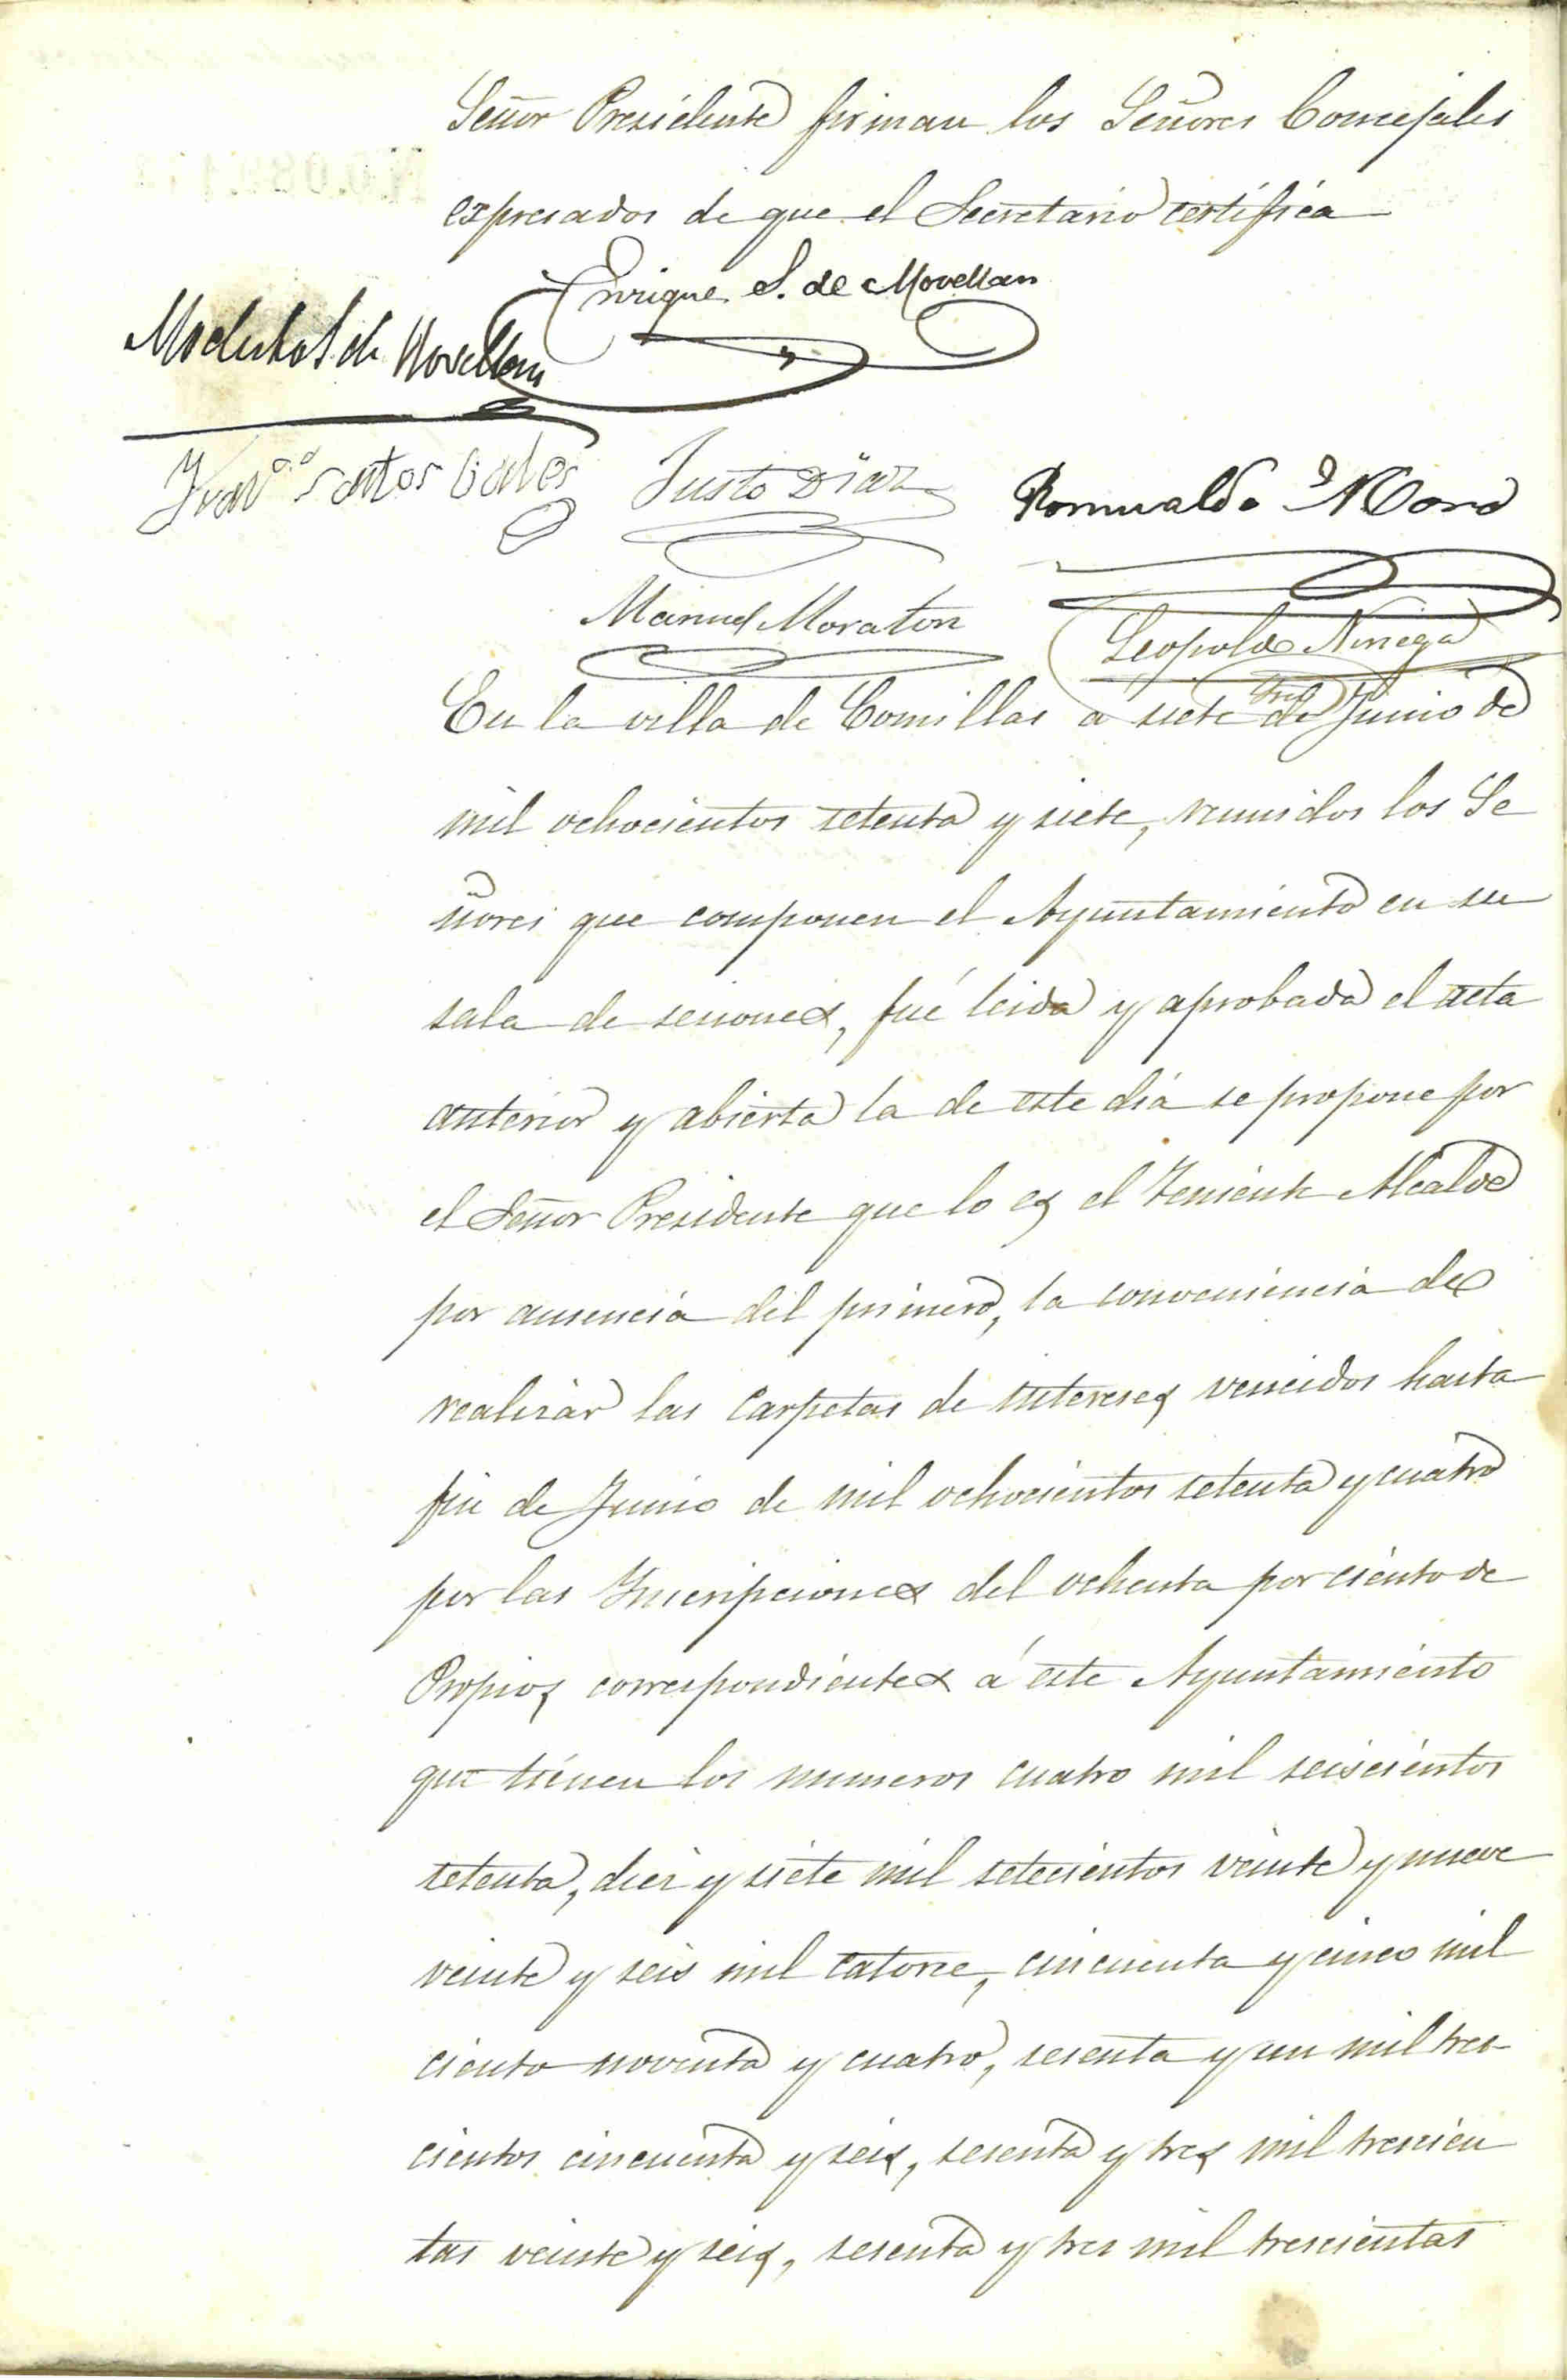 Señor Presidente firman los Señores Concejales
expresados de que el Secretario certifica
Enrique S. de Movellan
Modesto S de Movellan
Franco Santos
Justo Diaz
Romualdo Moro
Manuel Moraton
Leopoldo Noriega
Srio
En la villa de Comillas á siete de Junio de
mil ochocientos setenta y siete, reunidos los Se
ñores que componen el Ayuntamiento en su
sala de sesiones, fué leida y aprobada el acta
anterior y abierta la de este dia se propone por
el Señor Presidente que lo es el Teniente Alcalde
por ausencia del primero, la conveniencia de
realizar las carpetas de intereses vencidos hasta
fin de Junio de mil ochocientos setenta y cuatro
por las Inscripciones del ochenta por ciento de
Propios correspondientes á este Ayuntamiento
que tienen los numeros cuatro mil seiscientos
setenta, diez y siete mil setecientos veinte y nueve
veinte y seis mil catorce, cincuenta y cinco mil
ciento noventa y cuatro, sesenta y un mil tres-
cientos cincuenta y seis, sesenta y tres mil trescien
tas veinte y seis, sesenta y tres mil trescientas